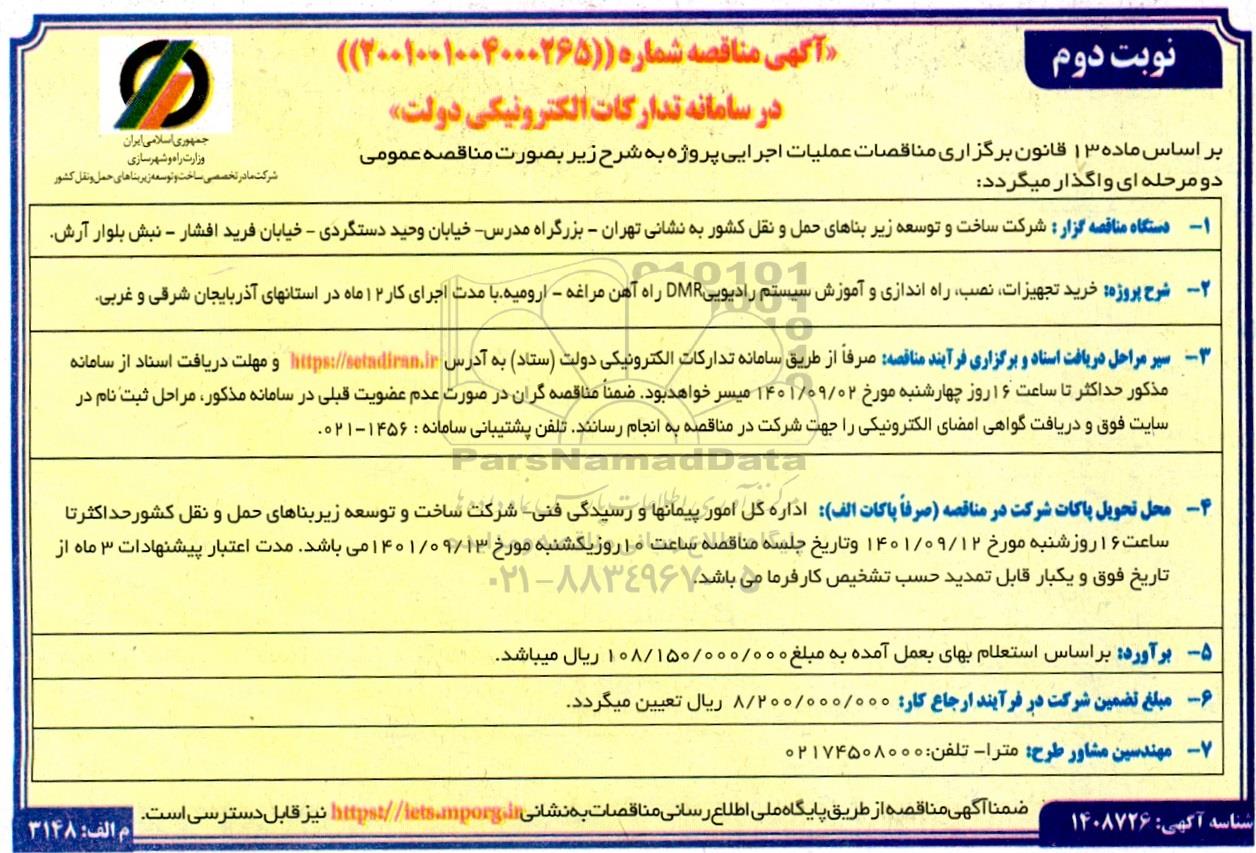 نوبت دوم
«آگهی مناقصه شماره ((۲۰۰۱۰۰۱۰۰۴۰۰۰۲۶۵))
در سامانه تدارکات الکترونیکی دولت»
جمهوری اسلامی ایران
وزارت راه و شهرسازی
شرکت مادر تخصصی ساخت و توسعه زیربناهای حمل و نقل کشور
بر اساس ماده ۱۳ قانون برگزاری مناقصات عملیات اجرایی پروژه به شرح زیر بصورت مناقصه عمومی
دو مرحله ای واگذار میگردد:
۱- دستگاه مناقصه گزار: شرکت ساخت و توسعه زیر بناهای حمل و نقل کشور به نشانی تهران – بزرگراه مدرس- خیابان وحید دستگردی – خیابان فرید افشار – نبش بلوار آرش.
۲- شرح پروژه: خرید تجهیزات، نصب، راه اندازی و آموزش سیستم رادیویی DMR راه آهن مراغه – ارومیه.با مدت اجرای کار ۱۲ماه در استانهای آذربایجان شرقی و غربی.
۳- سیر مراحل دریافت اسناد و برگزاری فرآیند مناقصه: صرفاً از طریق سامانه تدارکات الکترونیکی دولت (ستاد) به آدرس https://setadiran.ir و مهلت دریافت اسناد از سامانه
مذکور حداکثر تا ساعت ۱۶روز چهارشنبه مورخ ۱۴۰۱/۰۹/۰۲ میسر خواهدبود. ضمناً مناقصه گران در صورت عدم عضویت قبلی در سامانه مذکور، مراحل ثبت نام در
سایت فوق و دریافت گواهی امضای الکترونیکی را جهت شرکت در مناقصه به انجام رسانند. تلفن پشتیبانی سامانه : ۱۴۵۶-۰۲۱.
ParsNamadData
۴- محل تحویل پاکات شرکت در مناقصه (صرفاً پاکات الف): اداره کل امور پیمانها و رسیدگی فنی- شرکت ساخت و توسعه زیربناهای حمل و نقل کشورحداکثرتا
ساعت۱۶روزشنبه مورخ ۱۴۰۱/۰۹/۱۲ وتاریخ جلسه مناقصه ساعت ۱۰روزیکشنبه مورخ ۱۴۰۱/۰۹/۱۳می باشد. مدت اعتبار پیشنهادات ۳ ماه از
تاریخ فوق و یکبار قابل تمدید حسب تشخیص کارفرما می باشد.
۰۲۱-۸۸۳۴۹۶۷۰-۵
۵- برآورد: براساس استعلام بهای بعمل آمده به مبلغ۱۰۸/۱۵۰/۰۰۰/۰۰۰ ریال میباشد.
۶- مبلغ تضمین شرکت در فرآیند ارجاع کار: ۸/۲۰۰/۰۰۰/۰۰۰ ریال تعیین میگردد.
۷- مهندسین مشاور طرح: مترا- تلفن:۰۲۱۷۴۵۰۸۰۰۰
ضمنا آگهی مناقصه از طریق پایگاه ملی اطلاع رسانی مناقصات به نشانی https://iets.mporg.ir نیز قابل دسترسی است.
شناسه آگهی: ۱۴۰۸۷۲۶
م الف: ۳۱۴۸